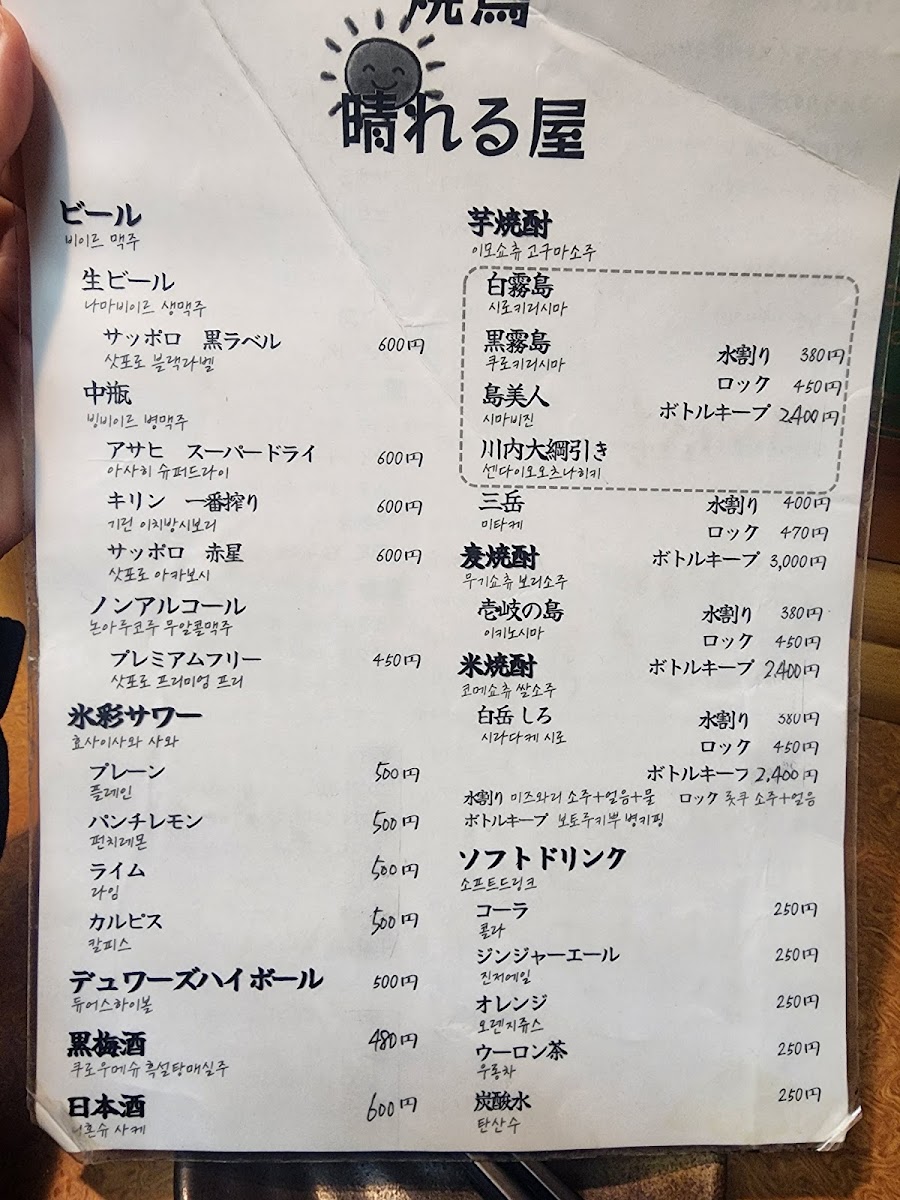 焼鳥
晴れる屋
ビール
비이르 맥주
生ビール
나마비이르 생맥주
サッポロ 黒ラベル 600円
삿포로 블랙라벨
中瓶
빙비이르 병맥주
アサヒ スーパードライ 600円
아사히 슈퍼드라이
キリン 一番搾り 600円
기린 이치방시보리
サッポロ 赤星 600円
삿포로 아카보시
ノンアルコール
논아루코루 무알콜맥주
プレミアムフリー 450円
삿포로 프리미엄 프리
氷彩サワー
효사이사와 사와
プレーン 500円
플레인
パンチレモン 500円
펀치레몬
ライム 500円
라임
カルピス 500円
칼피스
デュワーズハイボール 500円
듀어스하이볼
黒梅酒 480円
쿠로우메슈 흑설탕매실주
日本酒 600円
니혼슈 사케
芋焼酎
이모쇼츄 고구마소주
白霧島
시로키리시마
黒霧島
쿠로키리시마
水割り 380円
ロック 450円
島美人
시마비진
ボトルキープ 2,400円
川内大綱引き
센다이오오츠나히키
三岳 水割り 400円
미타케
ロック 470円
麦焼酎 ボトルキープ 3,000円
무기쇼츄 보리소주
壱岐の島 水割り 380円
이키노시마
ロック 450円
米焼酎 ボトルキープ 2,400円
코메쇼츄 쌀소주
白岳 しろ 水割り 380円
시라다케 시로
ロック 450円
ボトルキープ 2,400円
水割り 미즈와리 소주+얼음+물 ロック 롯쿠 소주+얼음
ボトルキープ 보토루키뿌 병키핑
ソフトドリンク
소프트드링크
コーラ 250円
콜라
ジンジャーエール 250円
진저에일
オレンジ 250円
오렌지쥬스
ウーロン茶 250円
우롱차
炭酸水 250円
탄산수